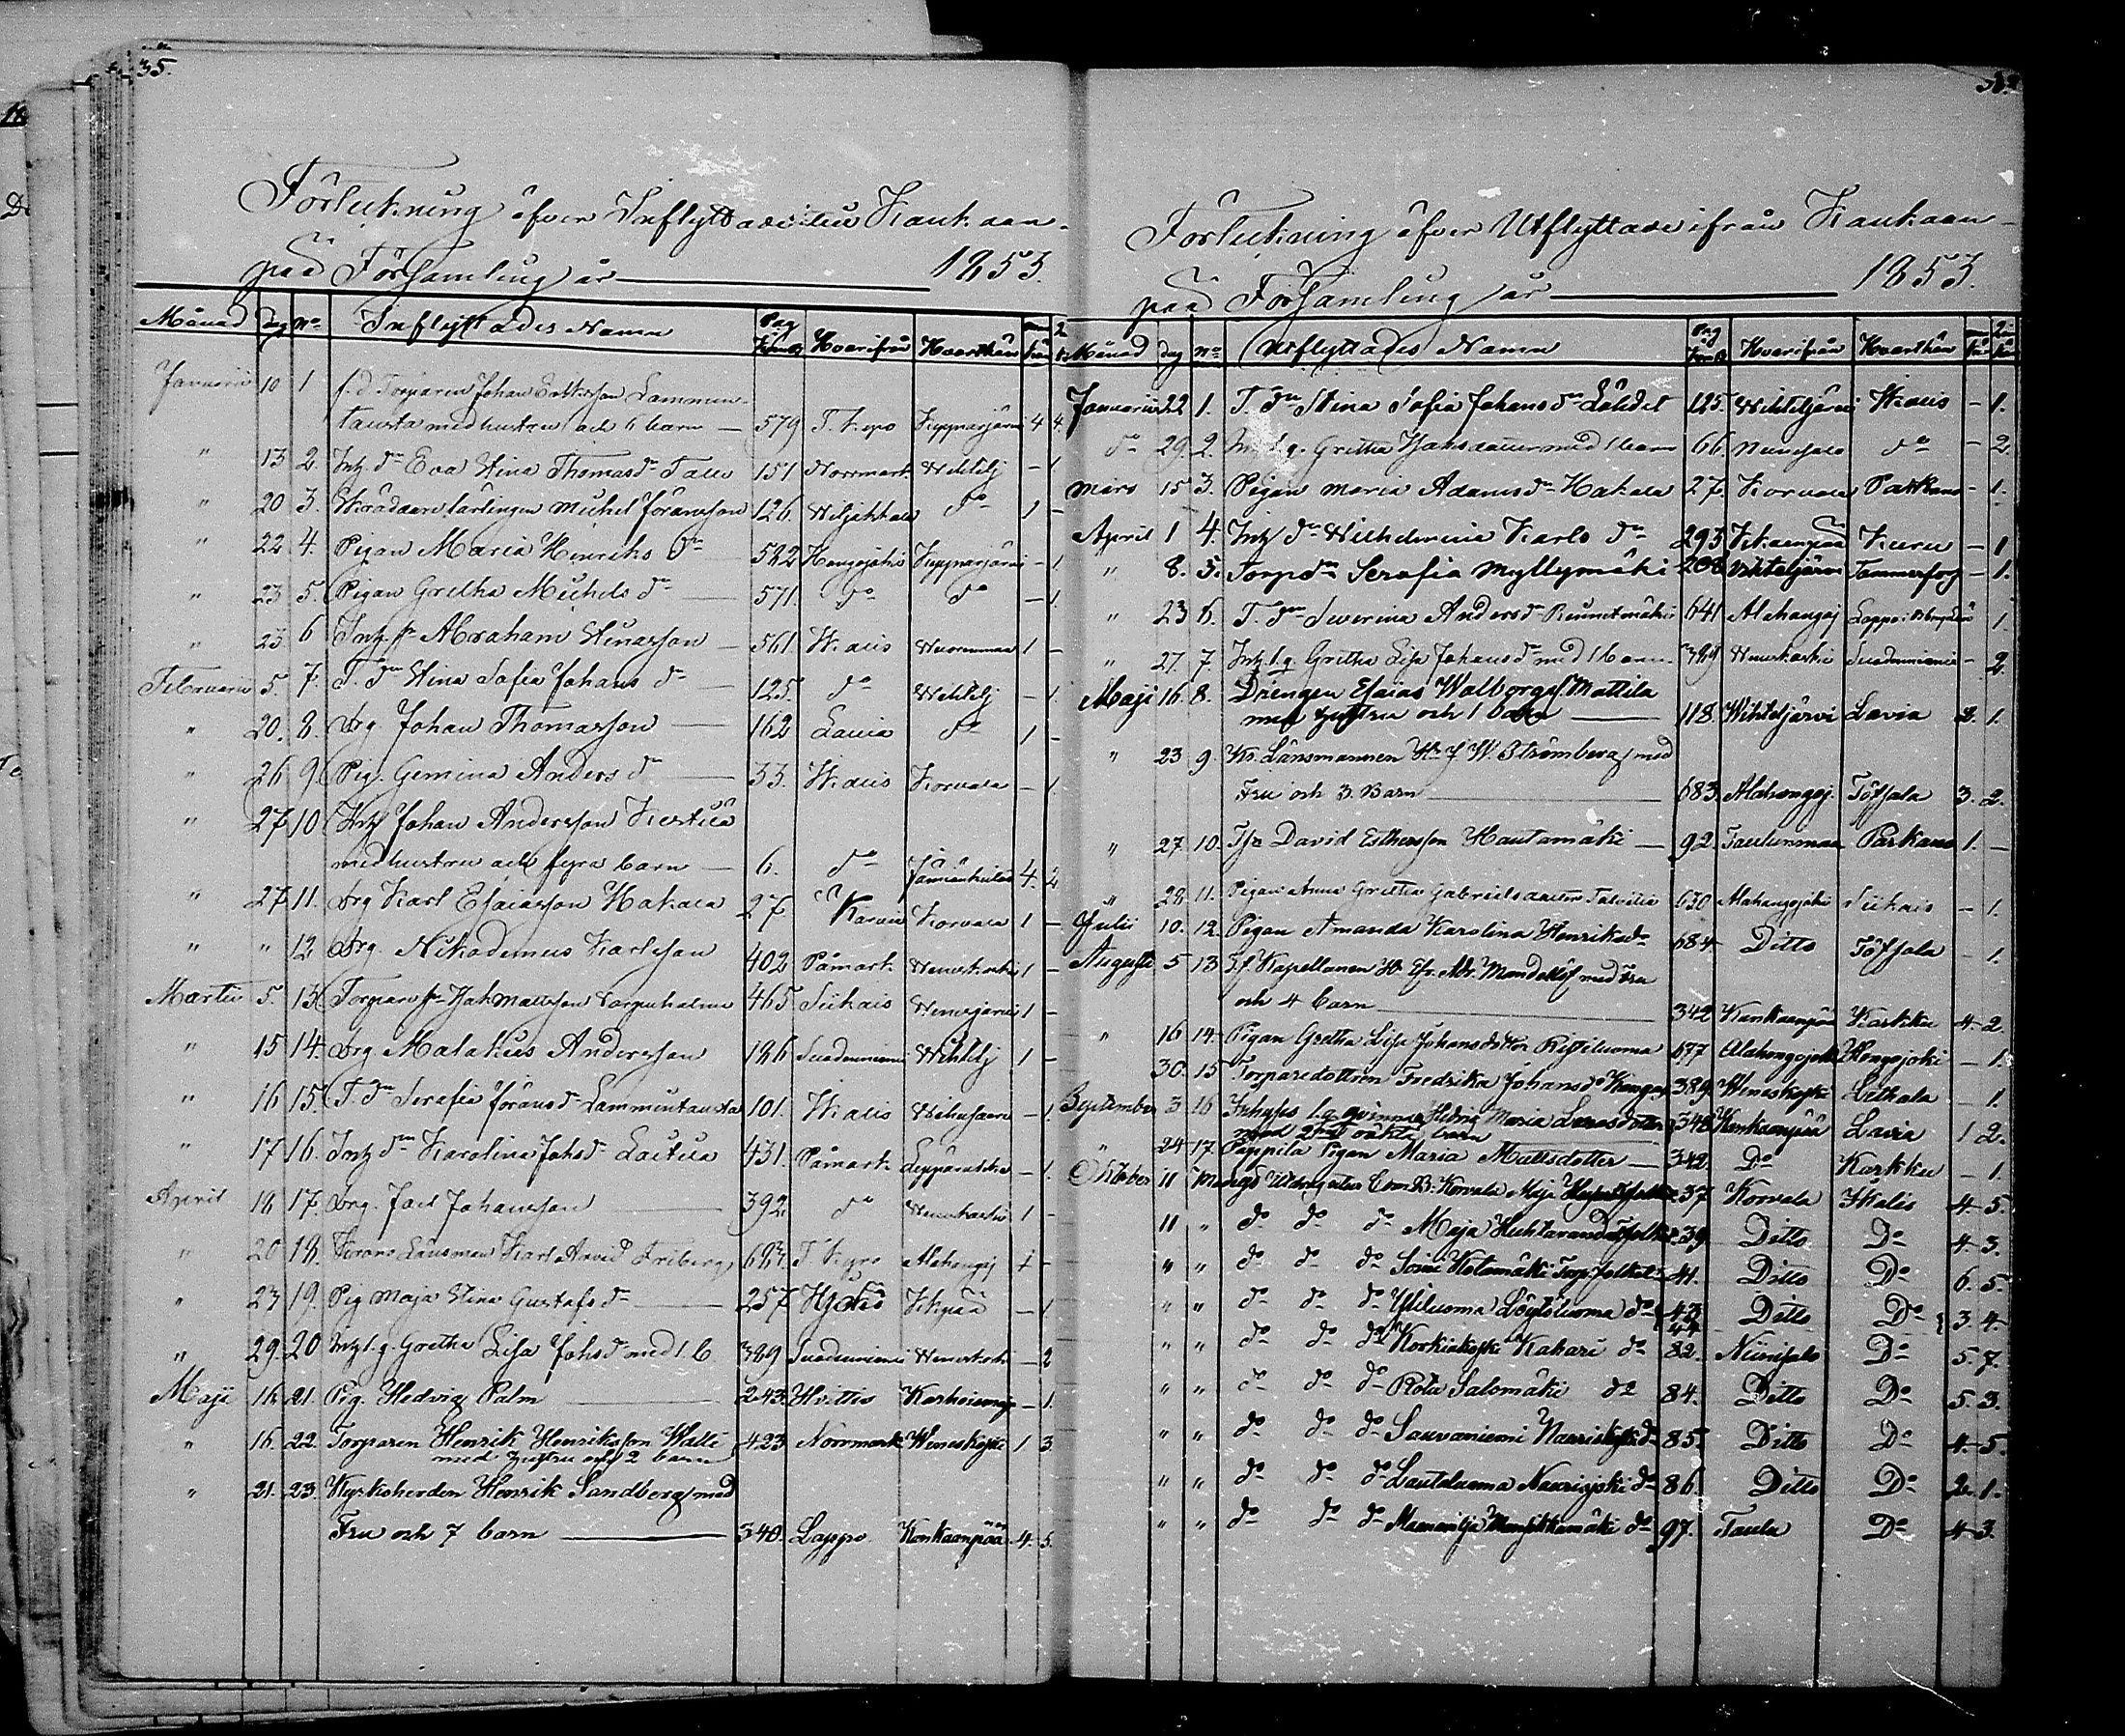 35.
Förteckning öfver Inflyttade till Kankaan-
pää Församling år 1853.
Månad dag No Inflyttades Namn Pag Hvarifrån Hvarthän
Januarii 10 1 f.d. Torparen Johan Lammin-
tausta med hustru och 6 barn 579 T. Kyro Leppäsjärvi 4 4.
" 13 2. Inh. dr Eva Stina Thomasdr 151 Norrmark Wihtelj - 1
" 20 3. Skräddare lärlingen Michel Göransson 126. do 1 -
" 22 4. Pigan Maria Henriks dr 522 Hongojoki - 1
" 23 5. Pigan Gretha Michels dr 571. do do - 1.
" 23 6 Abraham Stinasson 561 Ikalis 1 -
Februarii 5. 7. T. dr Stina Sofia Johans dr 125. do Wihtelj - 1.
" 20. 8. Drg Johan Thomasson 162 Lavia do 1 -
" 26 9. Pig. Gemina Anders dr 33. Ikalis Korvala - 1.
" 27 10 Inh Johan Andersson
med hustru och fyra barn 6. do 4. 2
" 27 11. Drg Karl Esaiasson Hakala 27 Karvia Korvala 1 -
" " 12 Drg. Nikodemus Karlsson 402 Påmark Weneskoski 1 -
Martii 5. 13. Torpare 465 Siikais Wenesjärvi 1 -
" 15 14. Drg Malakias Andersson 126 Suodenniemi Wihtelj 1 -
" 16 15. T. dr Serafia Göransdr Lammintausta 101. Ikalis - 1.
" 17 16. Inh dr Karolina Johsdr 431. Påmark - 1.
April 18 17. Drg. Joel Johansson 392. do 1 -
" 20 18. Krono Länsman Karl Arvid Friberg T. Kyro Alahongoj 1 -
" 23 19. Pig Maja Stina Gustafs dr 257. - 1.
" 29. 20 Inh. l.q. Gretha Lisa Johsdr med 1 b. 389 Suodenniemi Weneskoski - 2
Maji 16 21. Pig. Hedvig Palm 243. Hvittis Karhoismaja - 1.
" 16. 22. Torparen Henrik Henriksson Walli
med hustru och 2 barn 423 Norrmark Weneskoski 1 3
" 21. 23. Kyrkoherden Henrik Sandberg med
Fru och 7 barn 340. Lappo Kankaanpää 4. 5.
Förteckning öfver Utflyttade ifrån Kankaan-
pää Församling år 1853.
Månad dag No Utflyttades Namn Pag Hvarifrån Hvarthän
Januarii 22 1. T. dr Stina Sofia Johans dr 125. Wihteljärvi Ikalis - 1.
do 29. 2. Inh. l.q. Gretha med 1 barn 66. Niinisalo do - 2
Mars 15 3. Pigan Maria Adams dr Hakala 27. Korvala Parkano - 1.
April 1 4. Inh dr Wilhelmina Karls dr 293 Kuru - 1
" 8. 5. Torp dr Serafia Myllymäki 208 Wihteljärvi Tammerfors - 1.
" 23 6. T. dr Severina Anders dr 641 Alahongoj 1.
" 27. 7. Inh. l.q. Gretha Lisa Johans dr med 1 barn 389 Weneskoski Suodenniemi - 2.
Maji 16. 8. Drengen Esaias Walborgss. Mattila
med hustru och 1 barn 118. Wihteljärvi Lavia 2. 1.
" 23 9. Kr. Länsmannen Hr J. W. Strömberg med
Fru och 3 Barn 683. Alahongoj. Töfsala 3. 2.
" 27 10. David Esthersson Hautamäki 92. Taulunmaa Parkano 1. -
" 28. 11. Pigan Anna Gretha Gabrielsdotter 630 Alahongojoki Siikais - 1.
Julii 10. 12. Pigan Amanda Karolina Henriksdr 684 Ditto Töfsala - 1.
Augusti 5 13 Kapellanen Hr Mandellöf med Fru
och 4 barn 342 Kankaanpää Karkku 4 2.
" 16 14. Pigan Gretha Lisa Johansdotter Ristiluoma 677 Alahongojoki Hongojoki - 1.
30. 15 Torparedottren Fredrika Johansdr 389. Weneskoski - 1.
September 3 16 Inhyses l.q. qvinnan Hedvig Maria
med 2ne oäkta barn 348 Kankaanpää Lavia 1 2.
" 24 17. Pappila Pigan Maria Mattsdotter 342. Do Karkku - 1.
October 11 Korvala Maja 37 Korvala Ikalis 4 5.
11 " do do do Maja 39 Ditto Do 4. 3.
" " do do do Soini Hietamäki Torp folket 41. Ditto Do 6. 5.
" " do do do Yliluoma Löytöluoma do 43 44 Ditto Do 3 4.
" " do do do Korkiakoski Kakari do 82. Niinisalo Do 5. 7.
" " do do do Rota Salomäki do 84. Ditto Do 5. 3.
" " do do do Sauvaniemi do 85. Ditto Do 4. 5.
" " do do do Lautaluoma do 86. Ditto Do 2. 1.
" " do do do Mansikkamäki do 97. Taulu Do 4 3.